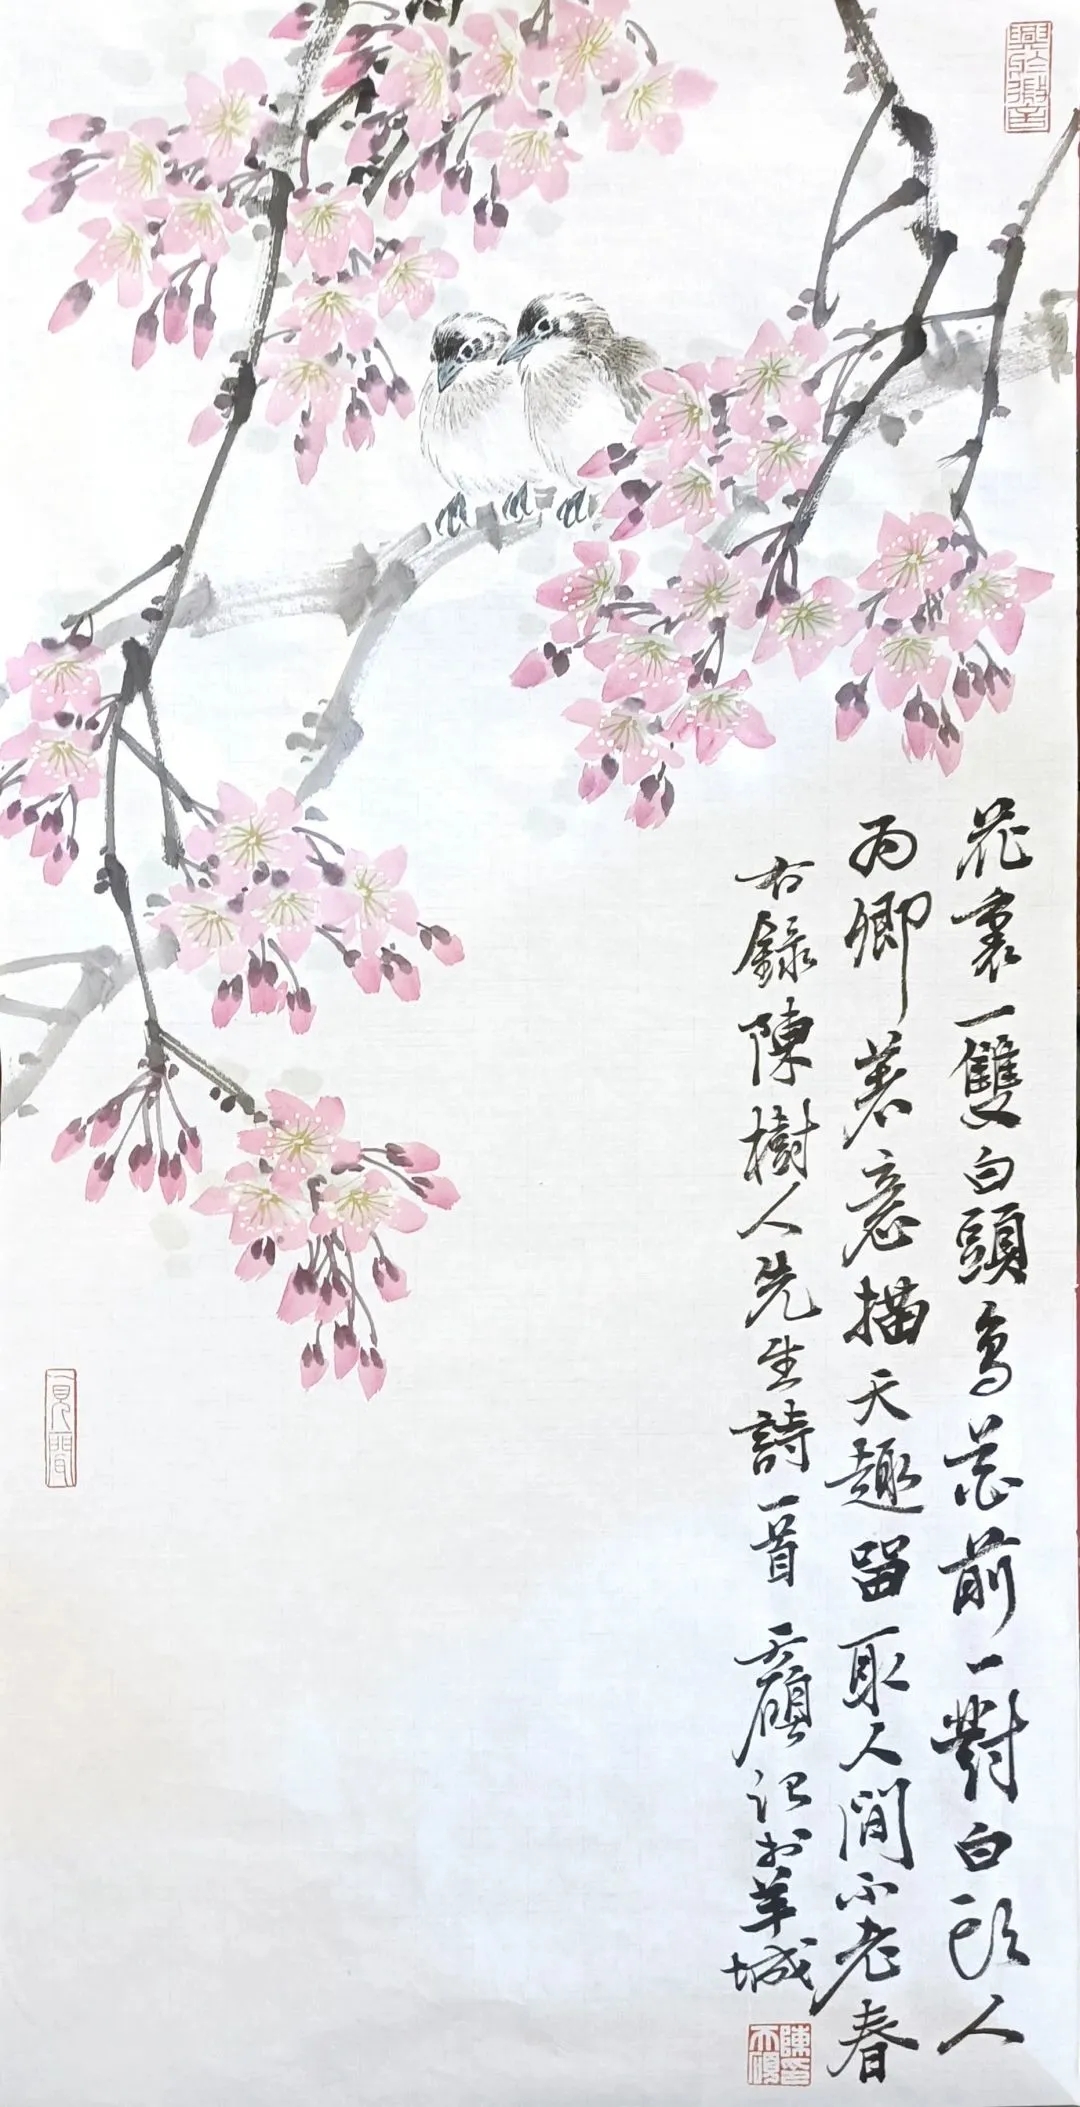 花裏一雙白頭鳥花前一對白頭人
為卿著意描天趣留取人間不老春
右錄陳樹人先生詩一首 天 記於羊城
興於微言